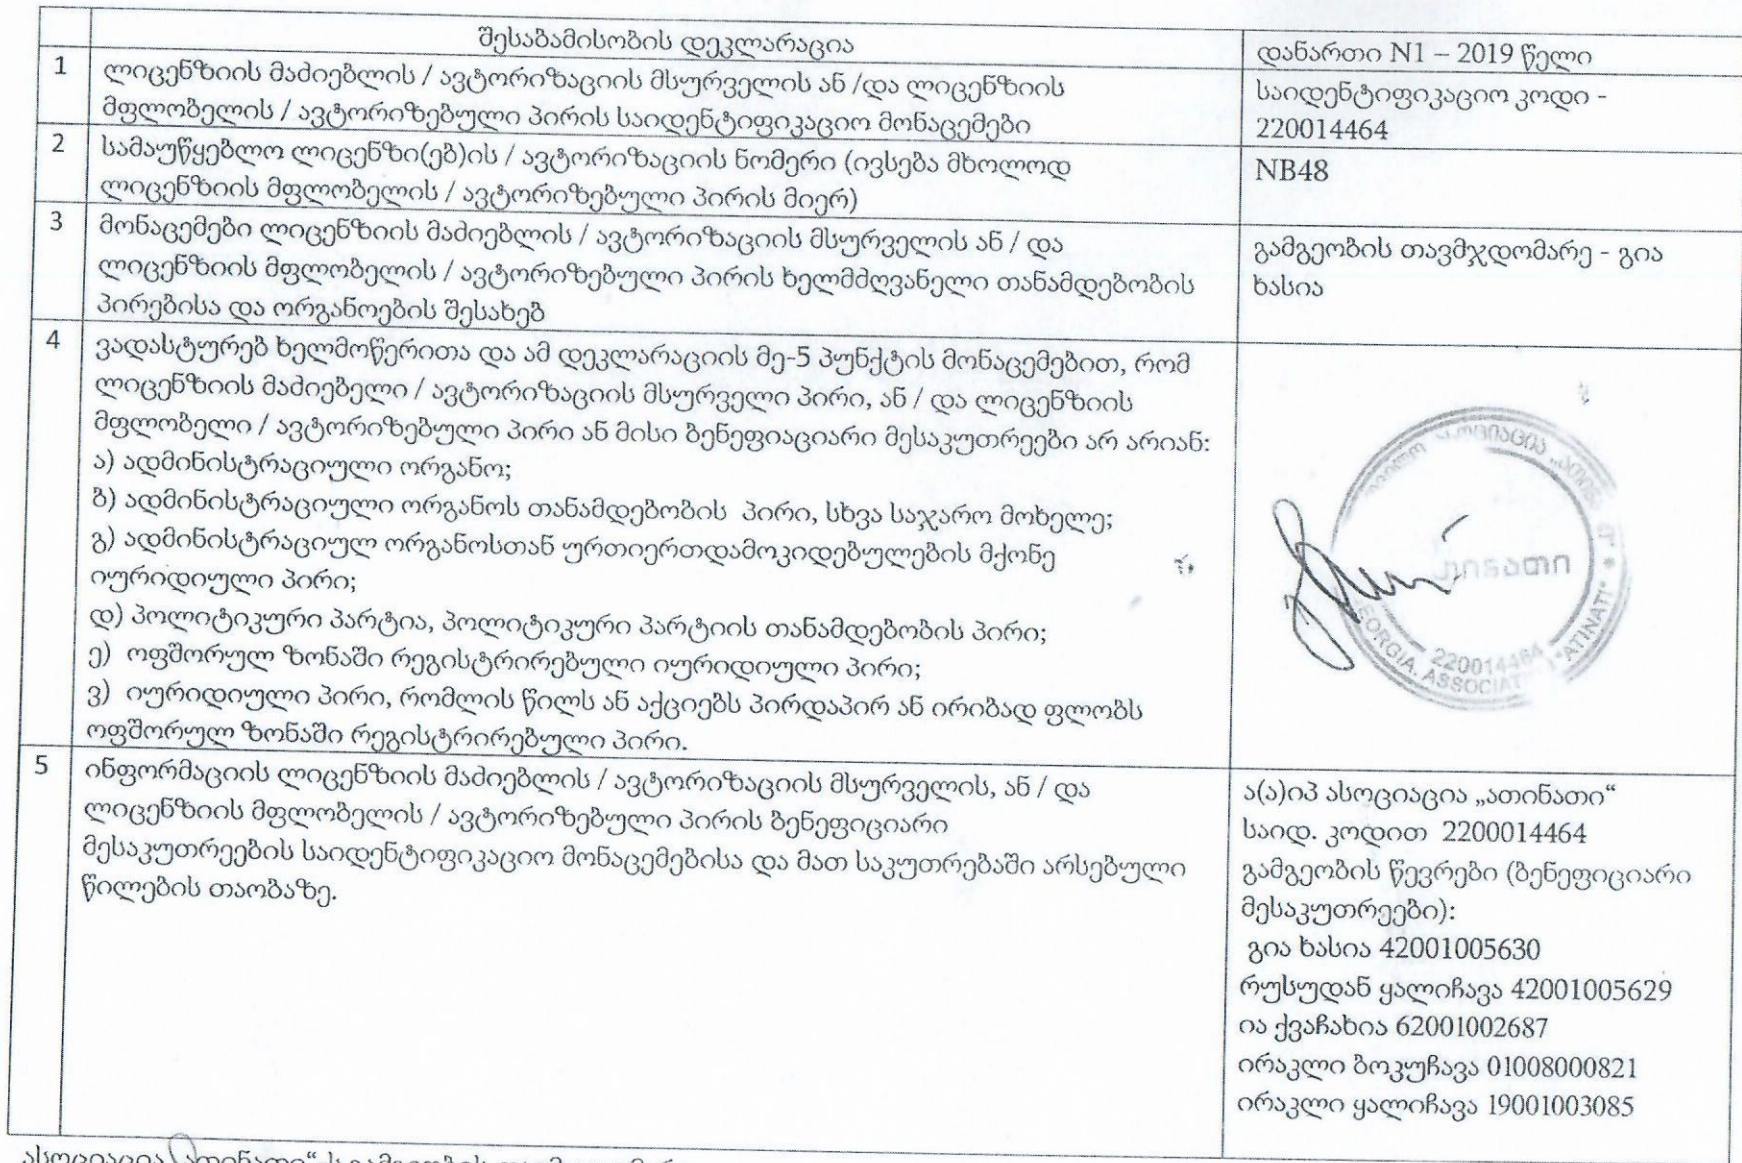 შესაბამისობის დეკლარაცია
დანართი N1 – 2019 წელი
1
ლიცენზიის მაძიებლის / ავტორიზაციის მსურველის ან /და ლიცენზიის
მფლობელის / ავტორიზებული პირის საიდენტიფიკაციო მონაცემები
საიდენტიფიკაციო კოდი -
220014464
2
სამაუწყებლო ლიცენზი(ებ)ის / ავტორიზაციის ნომერი (ივსება მხოლოდ
ლიცენზიის მფლობელის / ავტორიზებული პირის მიერ)
NB48
3
მონაცემები ლიცენზიის მაძიებლის / ავტორიზაციის მსურველის ან / და
ლიცენზიის მფლობელის / ავტორიზებული პირის ხელმძღვანელი თანამდებობის
პირებისა და ორგანოების შესახებ
გამგეობის თავმჯდომარე - გია
ხასია
4
ვადასტურებ ხელმოწერითა და ამ დეკლარაციის მე-5 პუნქტის მონაცემებით, რომ
ლიცენზიის მაძიებელი / ავტორიზაციის მსურველი პირი, ან / და ლიცენზიის
მფლობელი / ავტორიზებული პირი ან მისი ბენეფიაციარი მესაკუთრეები არ არიან:
ა) ადმინისტრაციული ორგანო;
ბ) ადმინისტრაციული ორგანოს თანამდებობის პირი, სხვა საჯარო მოხელე;
გ) ადმინისტრაციულ ორგანოსთან ურთიერთდამოკიდებულების მქონე
იურიდიული პირი;
დ) პოლიტიკური პარტია, პოლიტიკური პარტიის თანამდებობის პირი;
ე) ოფშორულ ზონაში რეგისტრირებული იურიდიული პირი;
ვ) იურიდიული პირი, რომლის წილს ან აქციებს პირდაპირ ან ირიბად ფლობს
ოფშორულ ზონაში რეგისტრირებული პირი.
220014464
"ATINATI"
5
ინფორმაციის ლიცენზიის მაძიებლის / ავტორიზაციის მსურველის, ან / და
ლიცენზიის მფლობელის / ავტორიზებული პირის ბენეფიციარი
მესაკუთრეების საიდენტიფიკაციო მონაცემებისა და მათ საკუთრებაში არსებული
წილების თაობაზე.
ა(ა)იპ ასოციაცია „ათინათი“
საიდ. კოდით 2200014464
გამგეობის წევრები (ბენეფიციარი
მესაკუთრეები):
გია ხასია 42001005630
რუსუდან ყალიჩავა 42001005629
ია ქვაჩახია 62001002687
ირაკლი ბოკუჩავა 01008000821
ირაკლი ყალიჩავა 19001003085